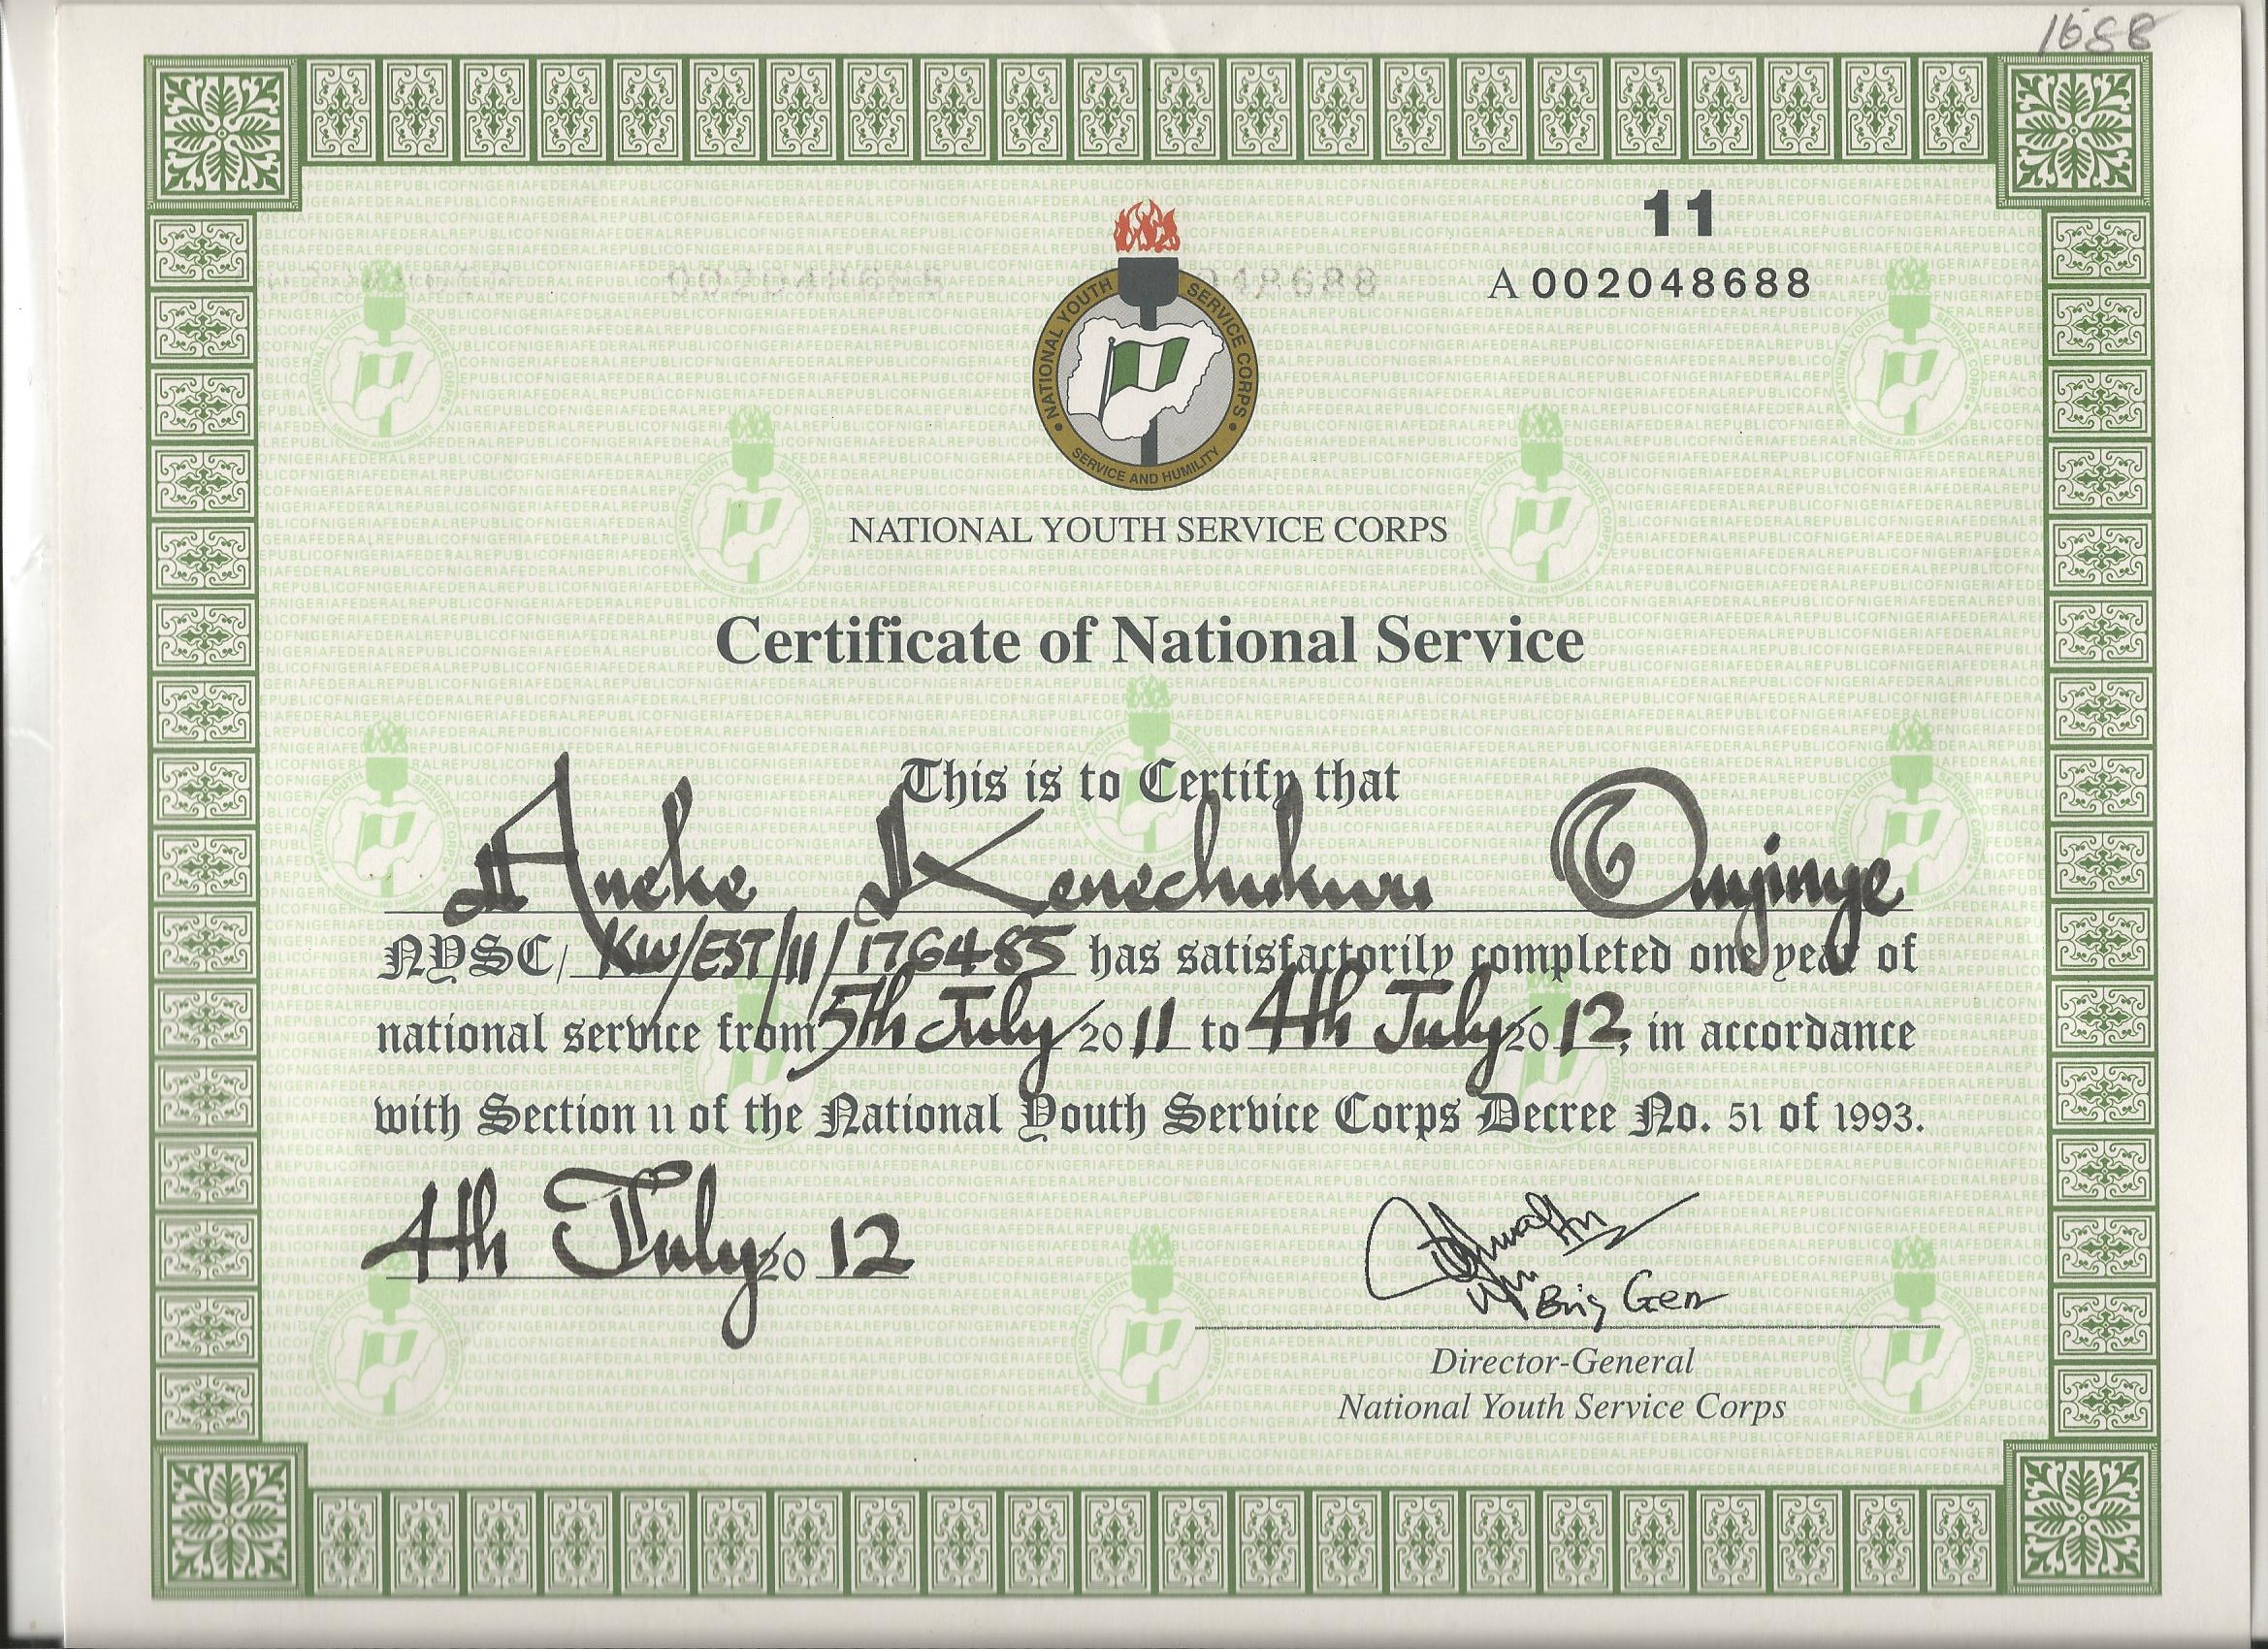 1688
11
A 002048688
NATIONAL YOUTH SERVICE CORPS
SERVICE AND HUMILITY
NATIONAL YOUTH SERVICE CORPS
Certificate of National Service
This is to Certify that
Aneke Kenechukwu Onyinye
NYSC/ KW/EST/11/176485 has satisfactorily completed one year of
national service from 5th July 2011 to 4th July 2012, in accordance
with Section 11 of the National Youth Service Corps Decree No. 51 of 1993.
4th July 2012
Brig Gen
Director-General
National Youth Service Corps